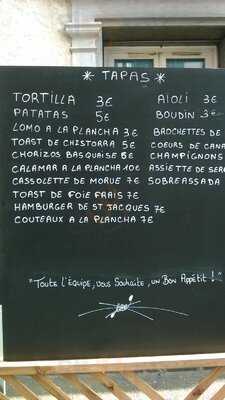 * TAPAS *
TORTILLA 3€
PATATAS 5€
LOMO A LA PLANCHA 3€
TOAST DE CHISTORRA 5€
CHORIZOS BASQUAISE 6€
CALAMAR A LA PLANCHA 10€
CASSOLETTE DE MORUE 7€
TOAST DE FOIE FRAIS 7€
HAMBURGER DE ST JACQUES 7€
COUTEAUX A LA PLANCHA 7€
AIOLI 3€
BOUDIN 3€
BROCHETTES DE
COEURS DE CANA
CHAMPIGNONS
ASSIETTE DE SER
SOBREASSADA
"Toute l'Equipe, vous Souhaite, un Bon Appétit !"